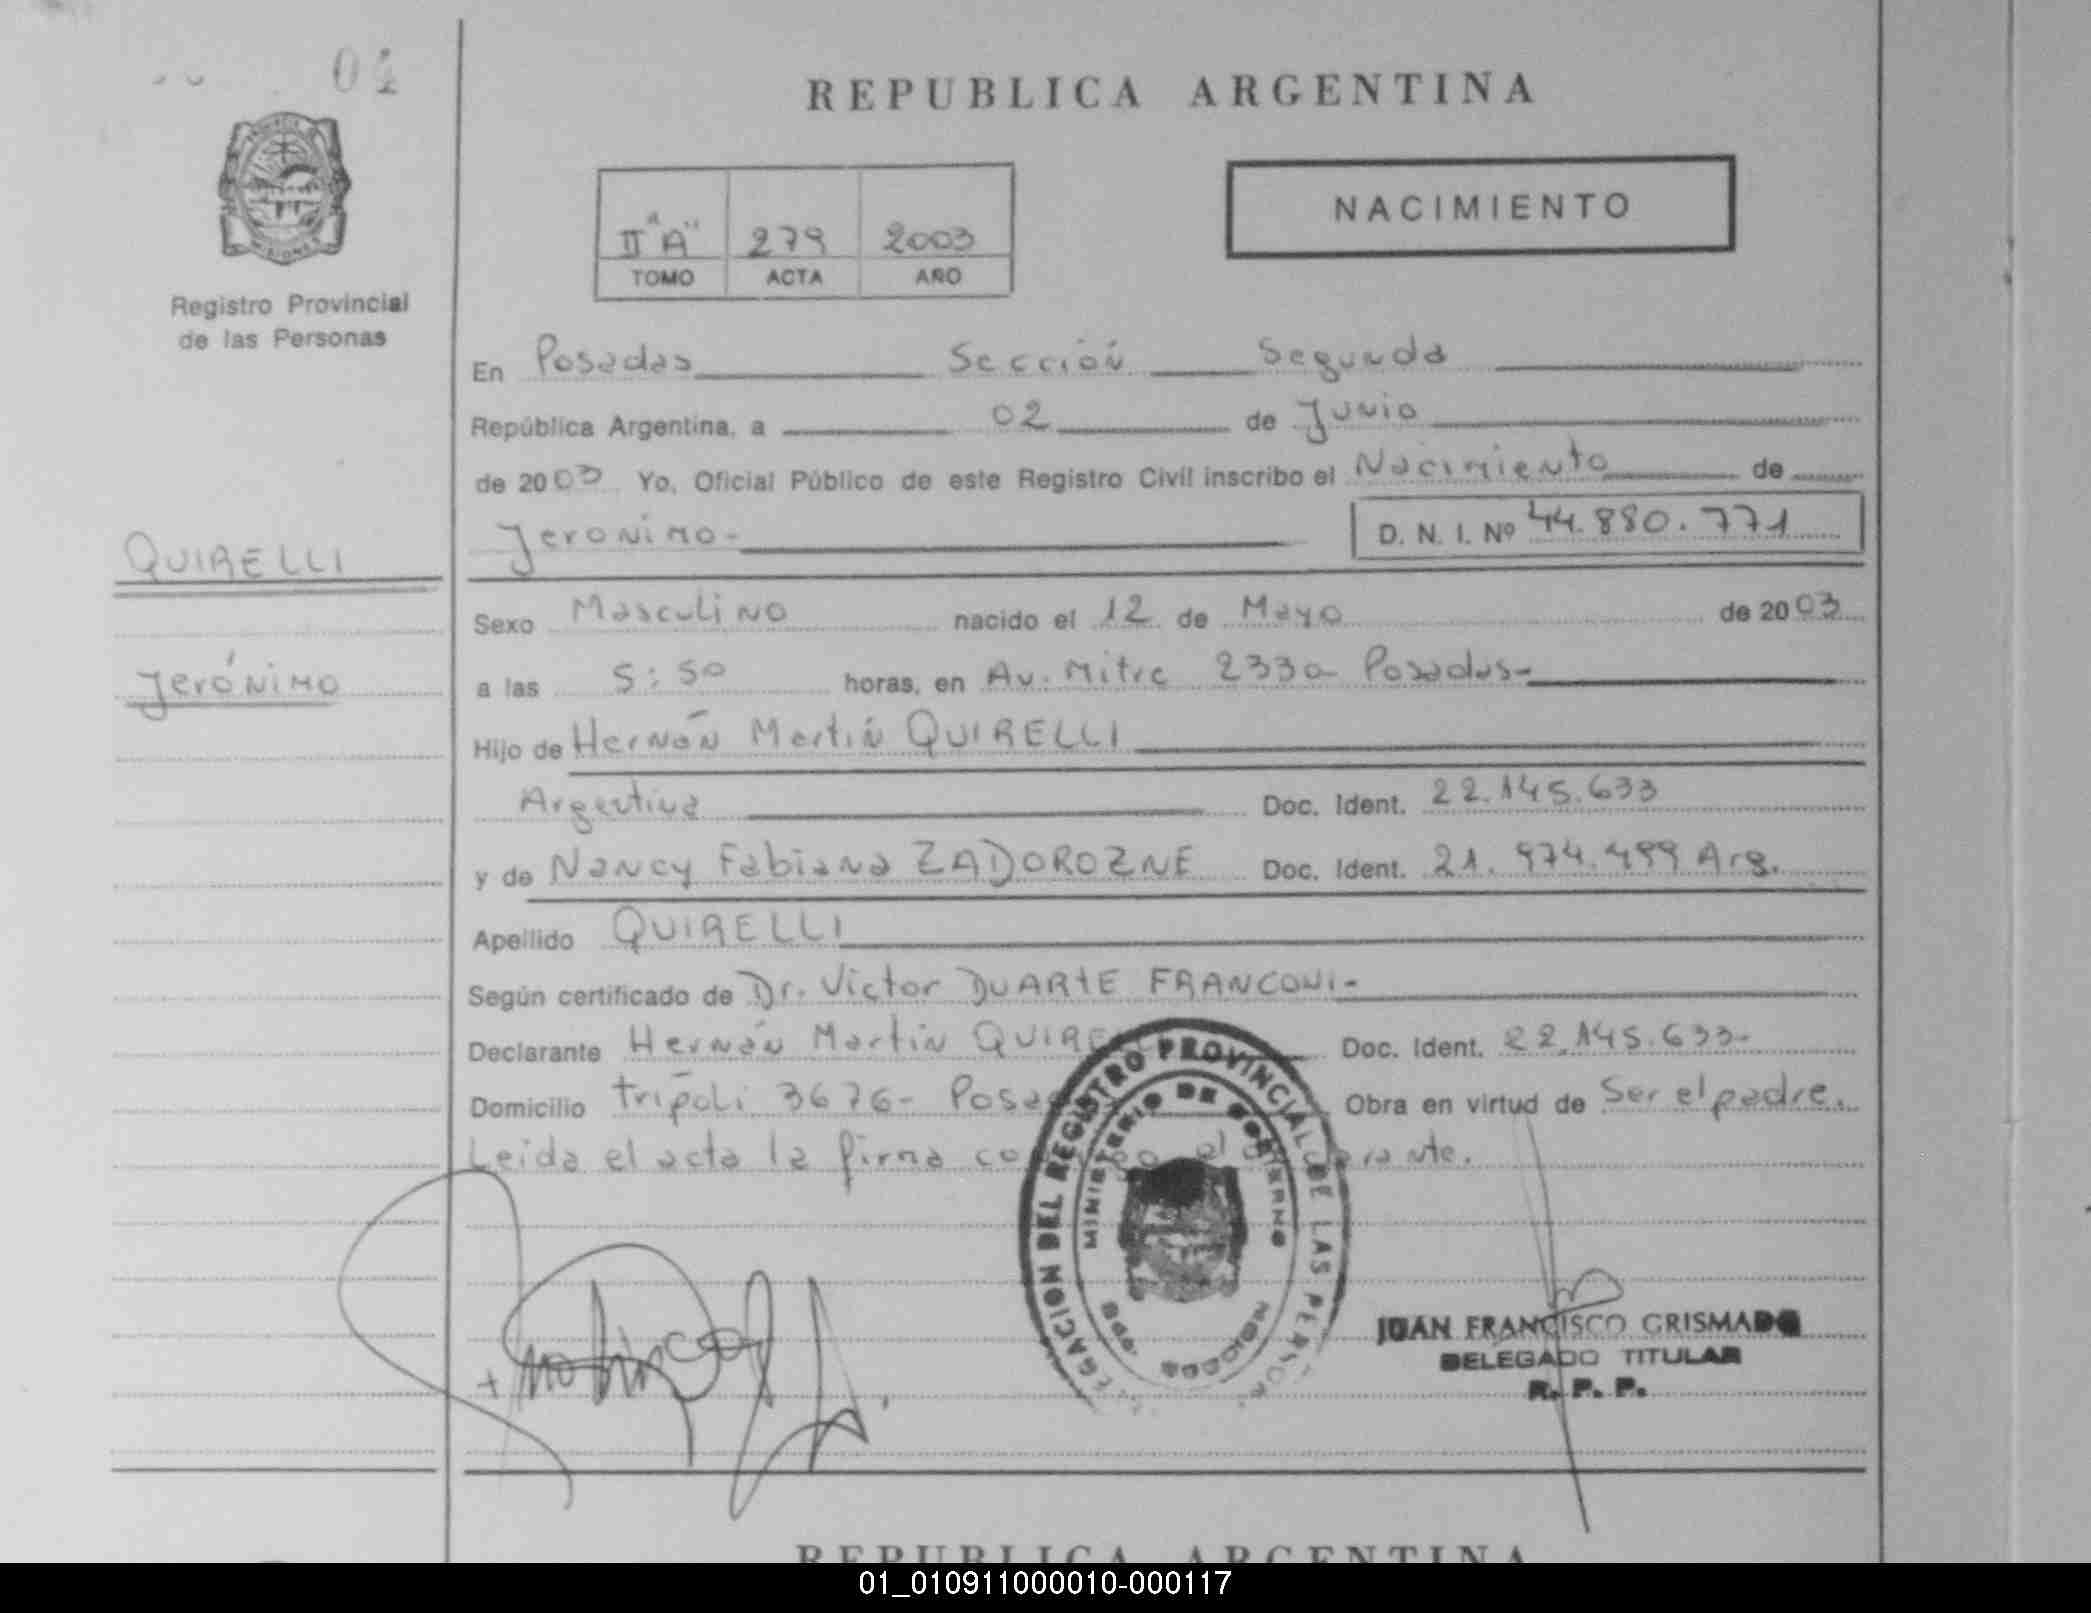 04
REPUBLICA ARGENTINA
II "A" 279 2003
TOMO ACTA AÑO
NACIMIENTO
PROVINCIA DE
MISIONES
Registro Provincial
de las Personas
En Posadas Sección Segunda
República Argentina, a 02 de Junio
de 2003 Yo, Oficial Público de este Registro Civil inscribo el Nacimiento de
Jeronimo- D. N. I. Nº 44.880.771
QUIRELLI
Jerónimo
Sexo Masculino nacido el 12 de Mayo de 2003
a las 5:50 horas, en Av. Mitre 2330- Posadas-
Hijo de Hernán Martín QUIRELLI
Argentina Doc. Ident. 22.145.633
y de Nancy Fabiana ZADOROZNE Doc. Ident. 21.974.499 Arg.
Apellido QUIRELLI
Según certificado de Dr. Victor DUARTE FRANCONI-
Declarante Hernán Martín QUIRE Doc. Ident. 22.145.633-
Domicilio trípoli 3676- Posa Obra en virtud de Ser el padre.
Leida el acta la firma co el rante.
DELEGACION DEL REGISTRO PROVINCIAL DE LAS PERSON
MINISTERIO DE GOBIERNO
JUAN FRANCISCO GRISMADO
DELEGADO TITULAR
R. P. P.
REPUBLICA ARGENTINA
01_010911000010-000117